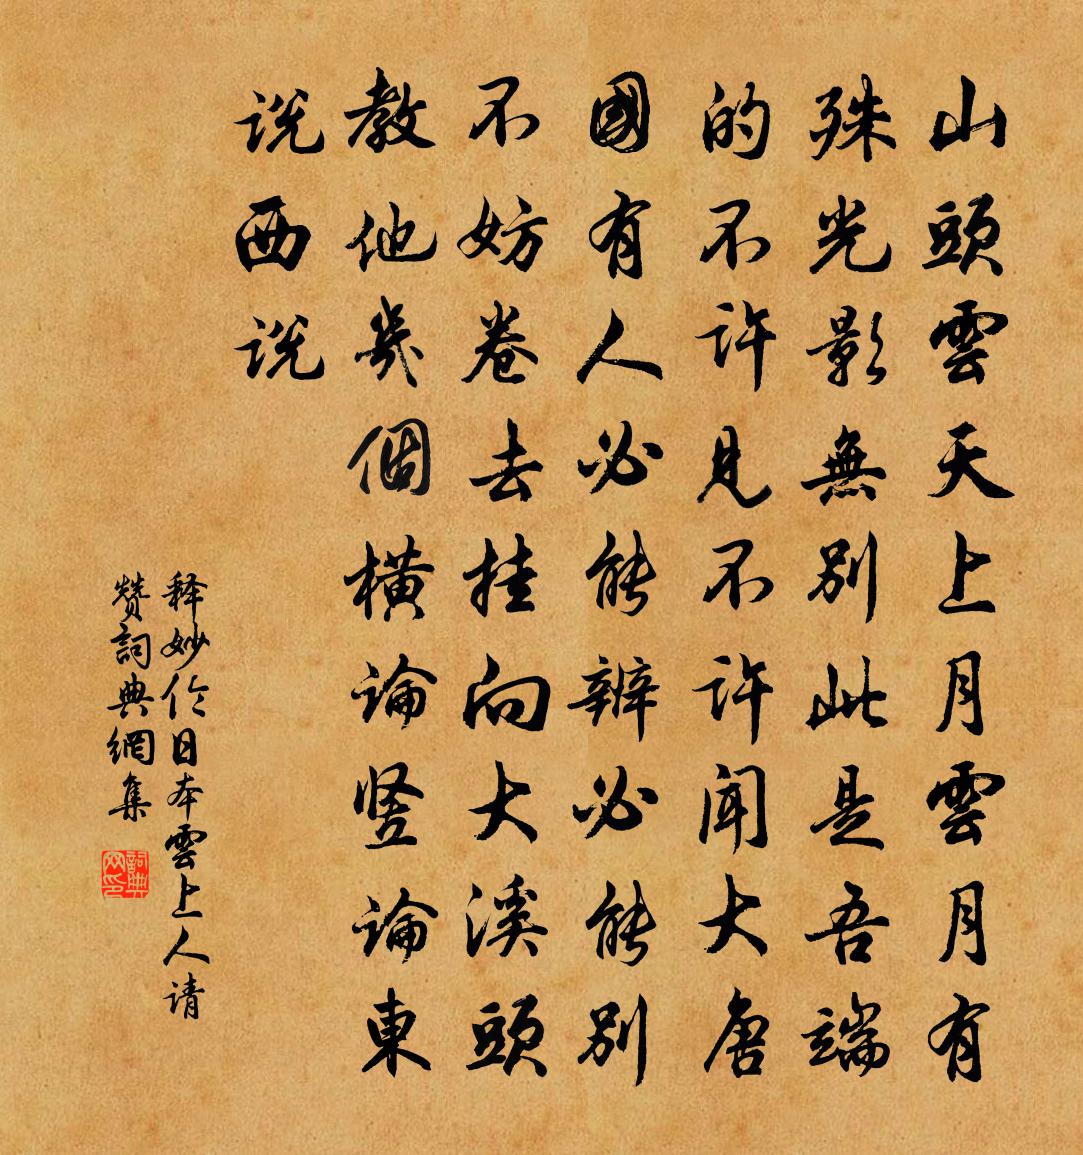 山頭雲天上月雲月有
殊光影無別此是吾端
的不许見不许闻大唐
國有人必能辨必能別
不妨卷去挂向大溪頭
教他幾個橫論竖論東
说西说
释妙伦日本雲上人请
赞詞典網集
詞典网印